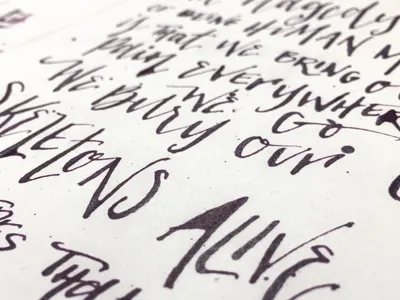 Tragedy
OF BEING HUMAN M
IS THAT WE BRING O
PAIN EVERYWHERE
WE GO
WE BURY OUR
SKELETONS ALIVE
THA